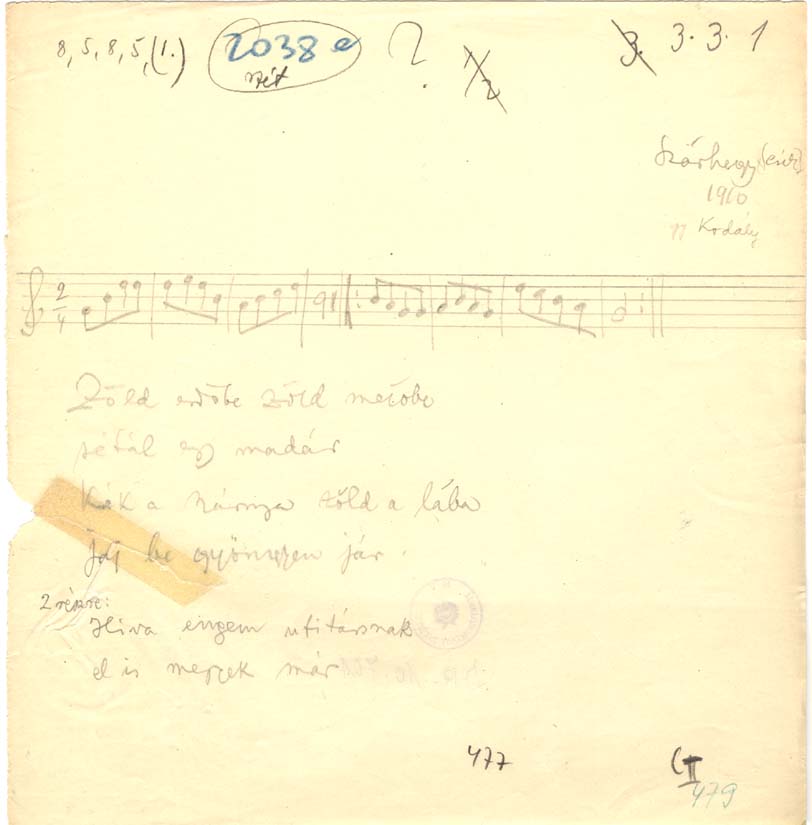 8, 5, 8, 5, (1.)
2038 e
?
1/2
3. 3. 3. 1
Szárhegy (Csík)
1910
Kodály
2/4
Zöld erdőbe zöld mezőbe
sétál egy madár
Kék a szárnya zöld a lába
jaj be gyöngyen jár
2 részre:
Hiva engem utitársnak
el is megyek már
477
II
479